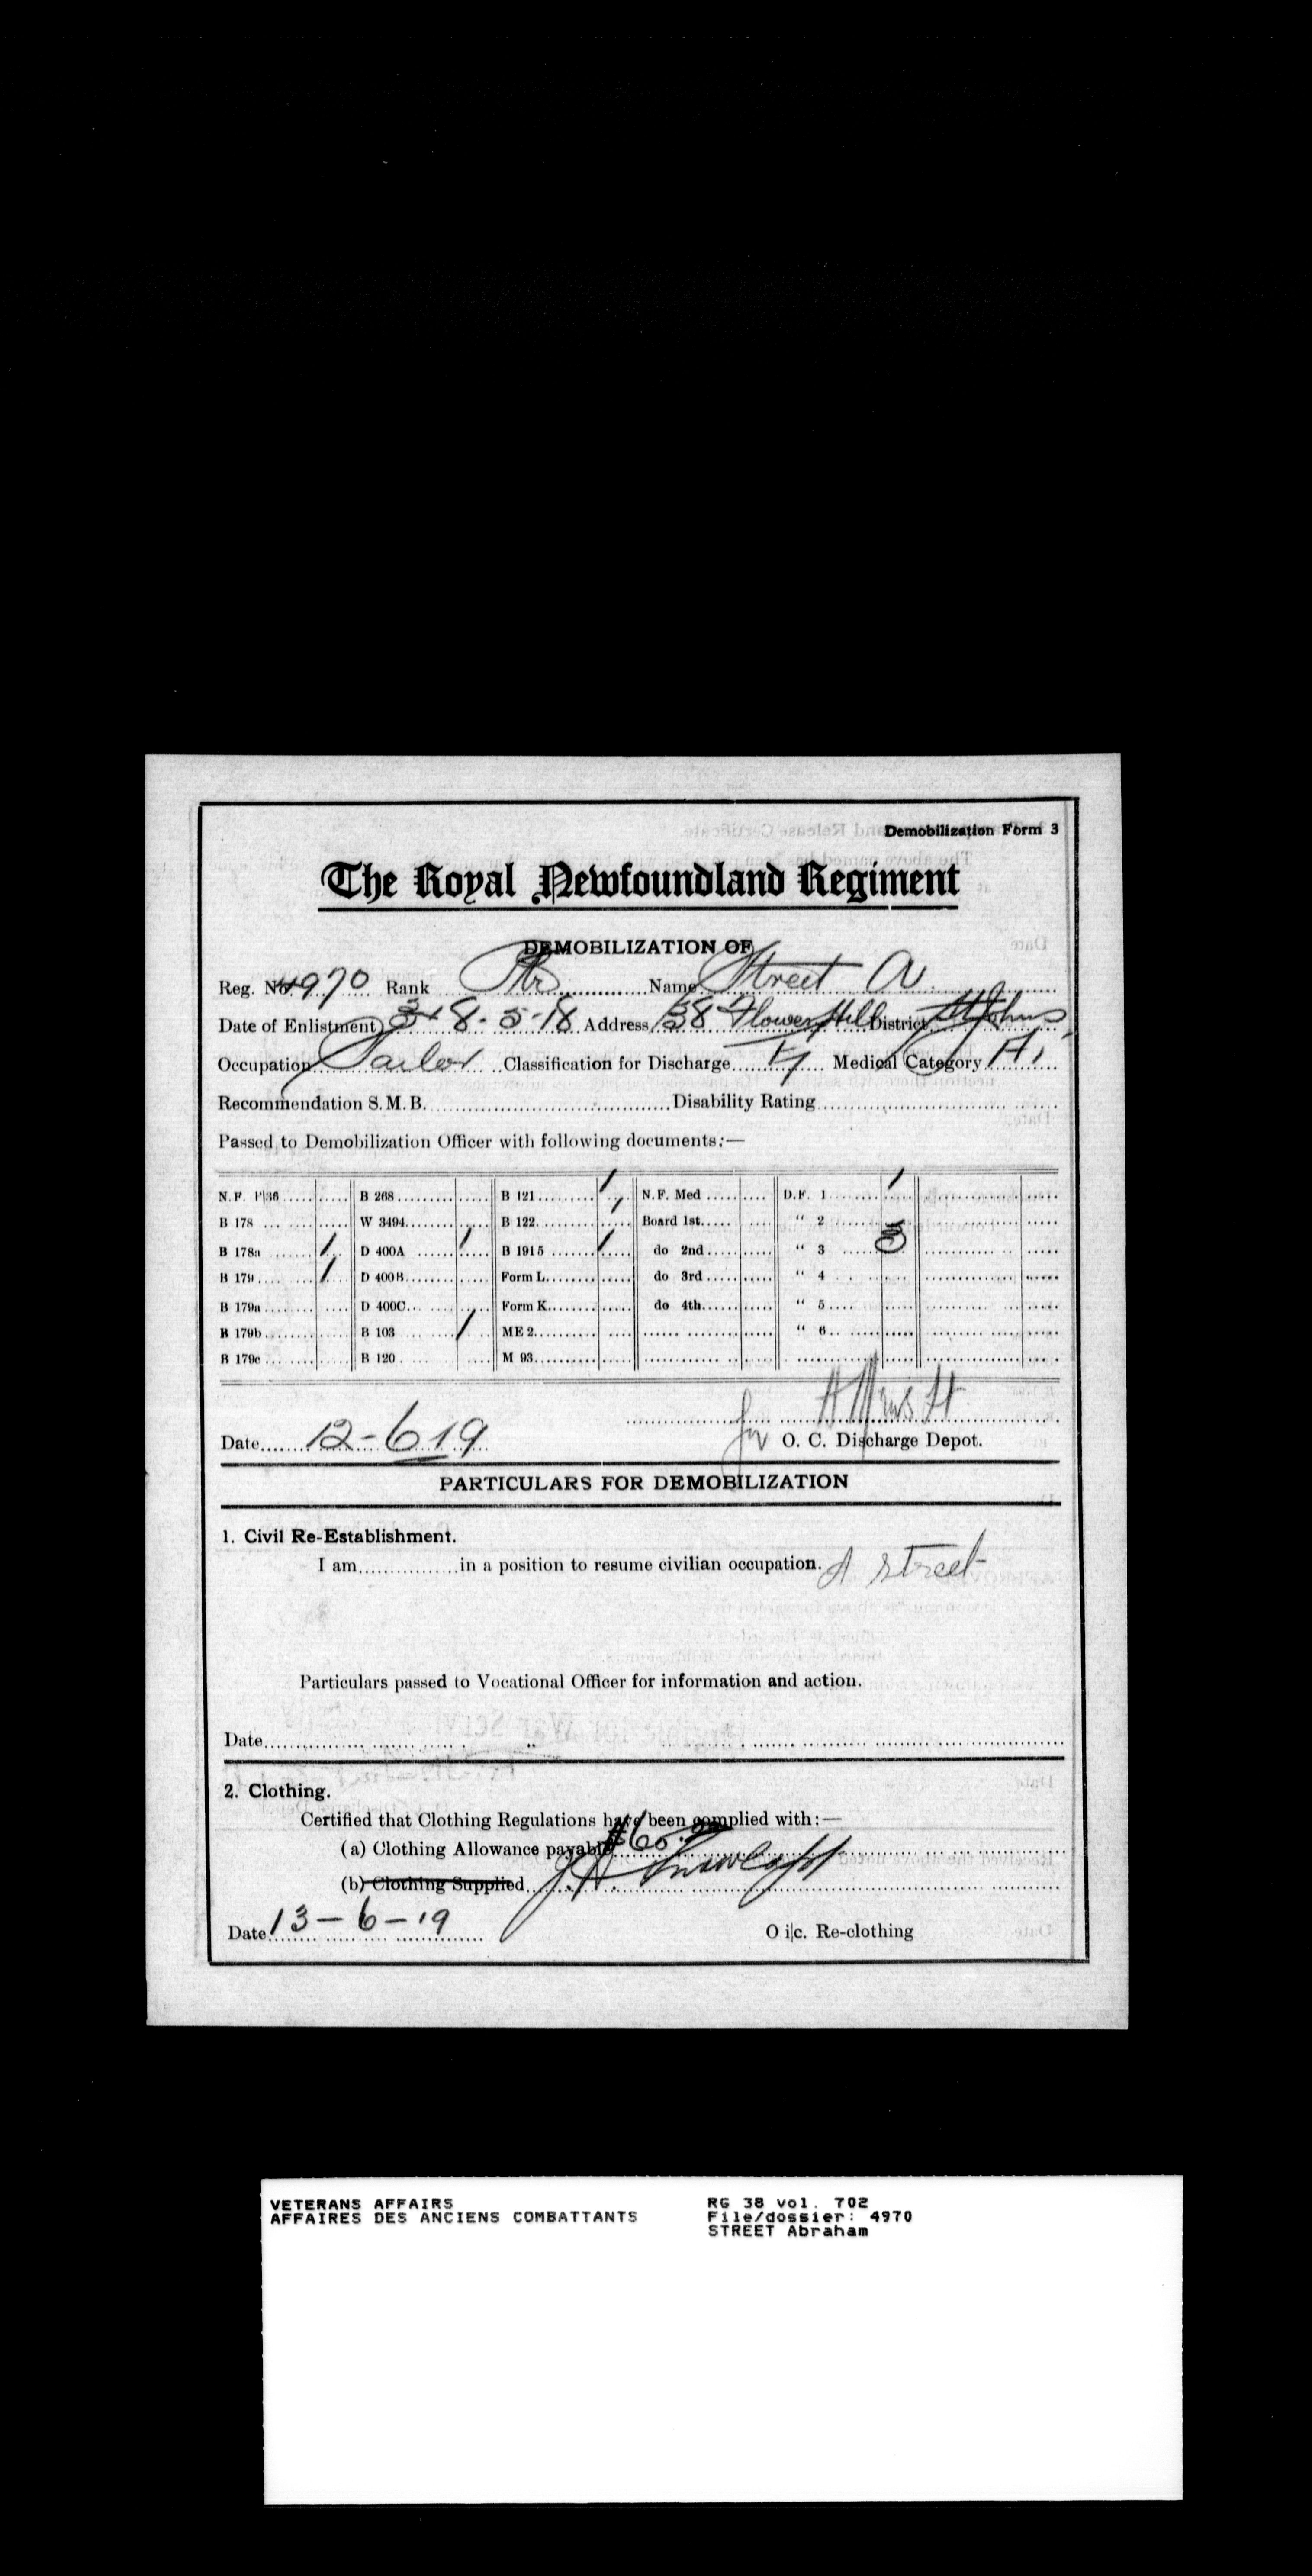 Demobilization Form 3
The Royal Newfoundland Regiment
DEMOBILIZATION OF
Reg. No. 4970 Rank Pte Name Street A.
Date of Enlistment 8-5-18 Address 38 Flower Hill District St Johns
Occupation Tailor Classification for Discharge Medical Category A1
Recommendation S.M.B. Disability Rating
Passed to Demobilization Officer with following documents:—
N.F. P|36 B 268 B 121 / N.F. Med D.F. 1 /
B 178 W 3494 B 122 / Board 1st " 2
B 178a / D 400A / B 1915 / do 2nd " 3 3
B 179 / D 400B Form L do 3rd " 4
B 179a D 400C Form K do 4th " 5
B 179b B 103 / ME 2 " 6
B 179c B 120 M 93
Date 12-6-19 for O. C. Discharge Depot.
PARTICULARS FOR DEMOBILIZATION
1. Civil Re-Establishment.
I am in a position to resume civilian occupation. A Street
Particulars passed to Vocational Officer for information and action.
Date
2. Clothing.
Certified that Clothing Regulations have been complied with:—
(a) Clothing Allowance payable $60.
(b) Clothing Supplied
Date 13-6-19 O i|c. Re-clothing
VETERANS AFFAIRS RG 38 vol. 702
AFFAIRES DES ANCIENS COMBATTANTS File/dossier: 4970
STREET Abraham